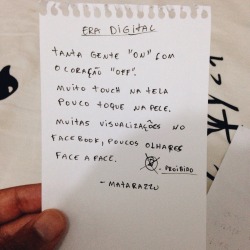 ERA DIGITAL
TANTA GENTE "ON" COM
O CORAÇÃO "OFF".
MUITO TOUCH NA TELA
POUCO TOQUE NA PELE.
MUITAS VISUALIZAÇÕES NO
FACEBOOK, POUCOS OLHARES
FACE A FACE.
- PROIBIDO
- MATARAZZO